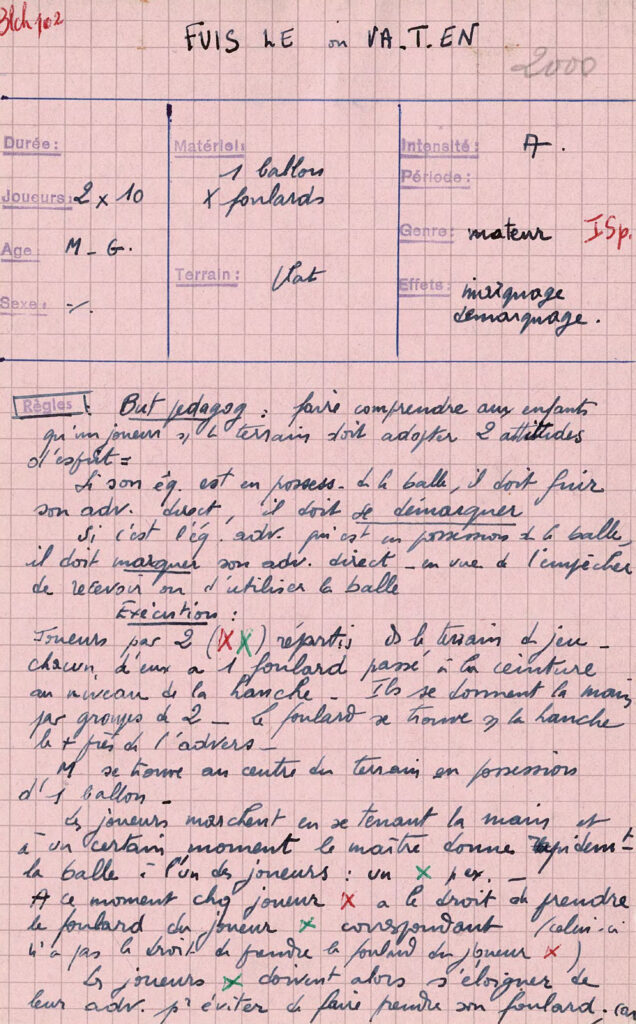 Blch 102
FUIS LE ou VA.T.EN
2000
Durée :
Joueurs : 2 x 10
Age M - G.
Sexe :
Matériel :
1 ballon
X foulards
Terrain : Plat
Intensité : A.
Période :
Genre : mateur ISp.
Effets : marquage
démarquage.
Règles : But pédagog : faire comprendre aux enfants
qu'un joueur s/ le terrain doit adopter 2 attitudes
d'esprit =
Si son éq. est en possess. de la balle, il doit fuir
son adv. direct, il doit se démarquer
Si c'est l'éq. adv. qui est en possession de la balle,
il doit marquer son adv. direct - en vue de l'empêcher
de recevoir ou d'utiliser la balle
Exécution :
Joueurs par 2 (XX) répartis ds le terrain de jeu -
chacun d'eux a 1 foulard passé à la ceinture
au niveau de la hanche - Ils se donnent la main
par groupes de 2 - Le foulard se trouve s/ la hanche
le + près de l'advers -
M se trouve au centre du terrain en possession
d'1 ballon -
Les joueurs marchent en se tenant la main et
à un certain moment le maître donne rapidemt
la balle à l'un des joueurs : un X p ex. -
A ce moment chq joueur X a le droit de prendre
le foulard du joueur X correspondant (celui-ci
n'a pas le droit de prendre le foulard du joueur X)
Les joueurs X doivent alors s'éloigner de
leur adv. pr éviter de faire prendre son foulard. (car